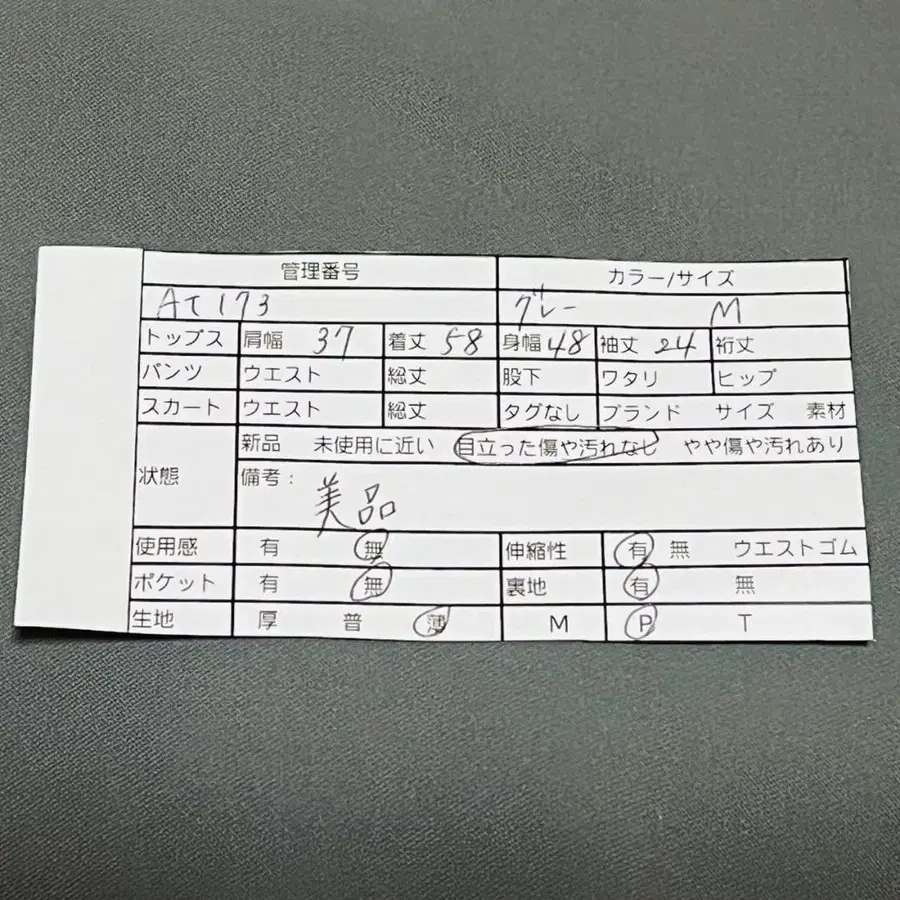 管理番号 カラー/サイズ
AT173 グレー M
トップス 肩幅 37 着丈 58 身幅 48 袖丈 24 裄丈
パンツ ウエスト 総丈 股下 ワタリ ヒップ
スカート ウエスト 総丈 タグなし ブランド サイズ 素材
新品 未使用に近い 目立った傷や汚れなし やや傷や汚れあり
状態 備考: 美品
使用感 有 無 伸縮性 有 無 ウエストゴム
ポケット 有 無 裏地 有 無
生地 厚 普 薄 M P T